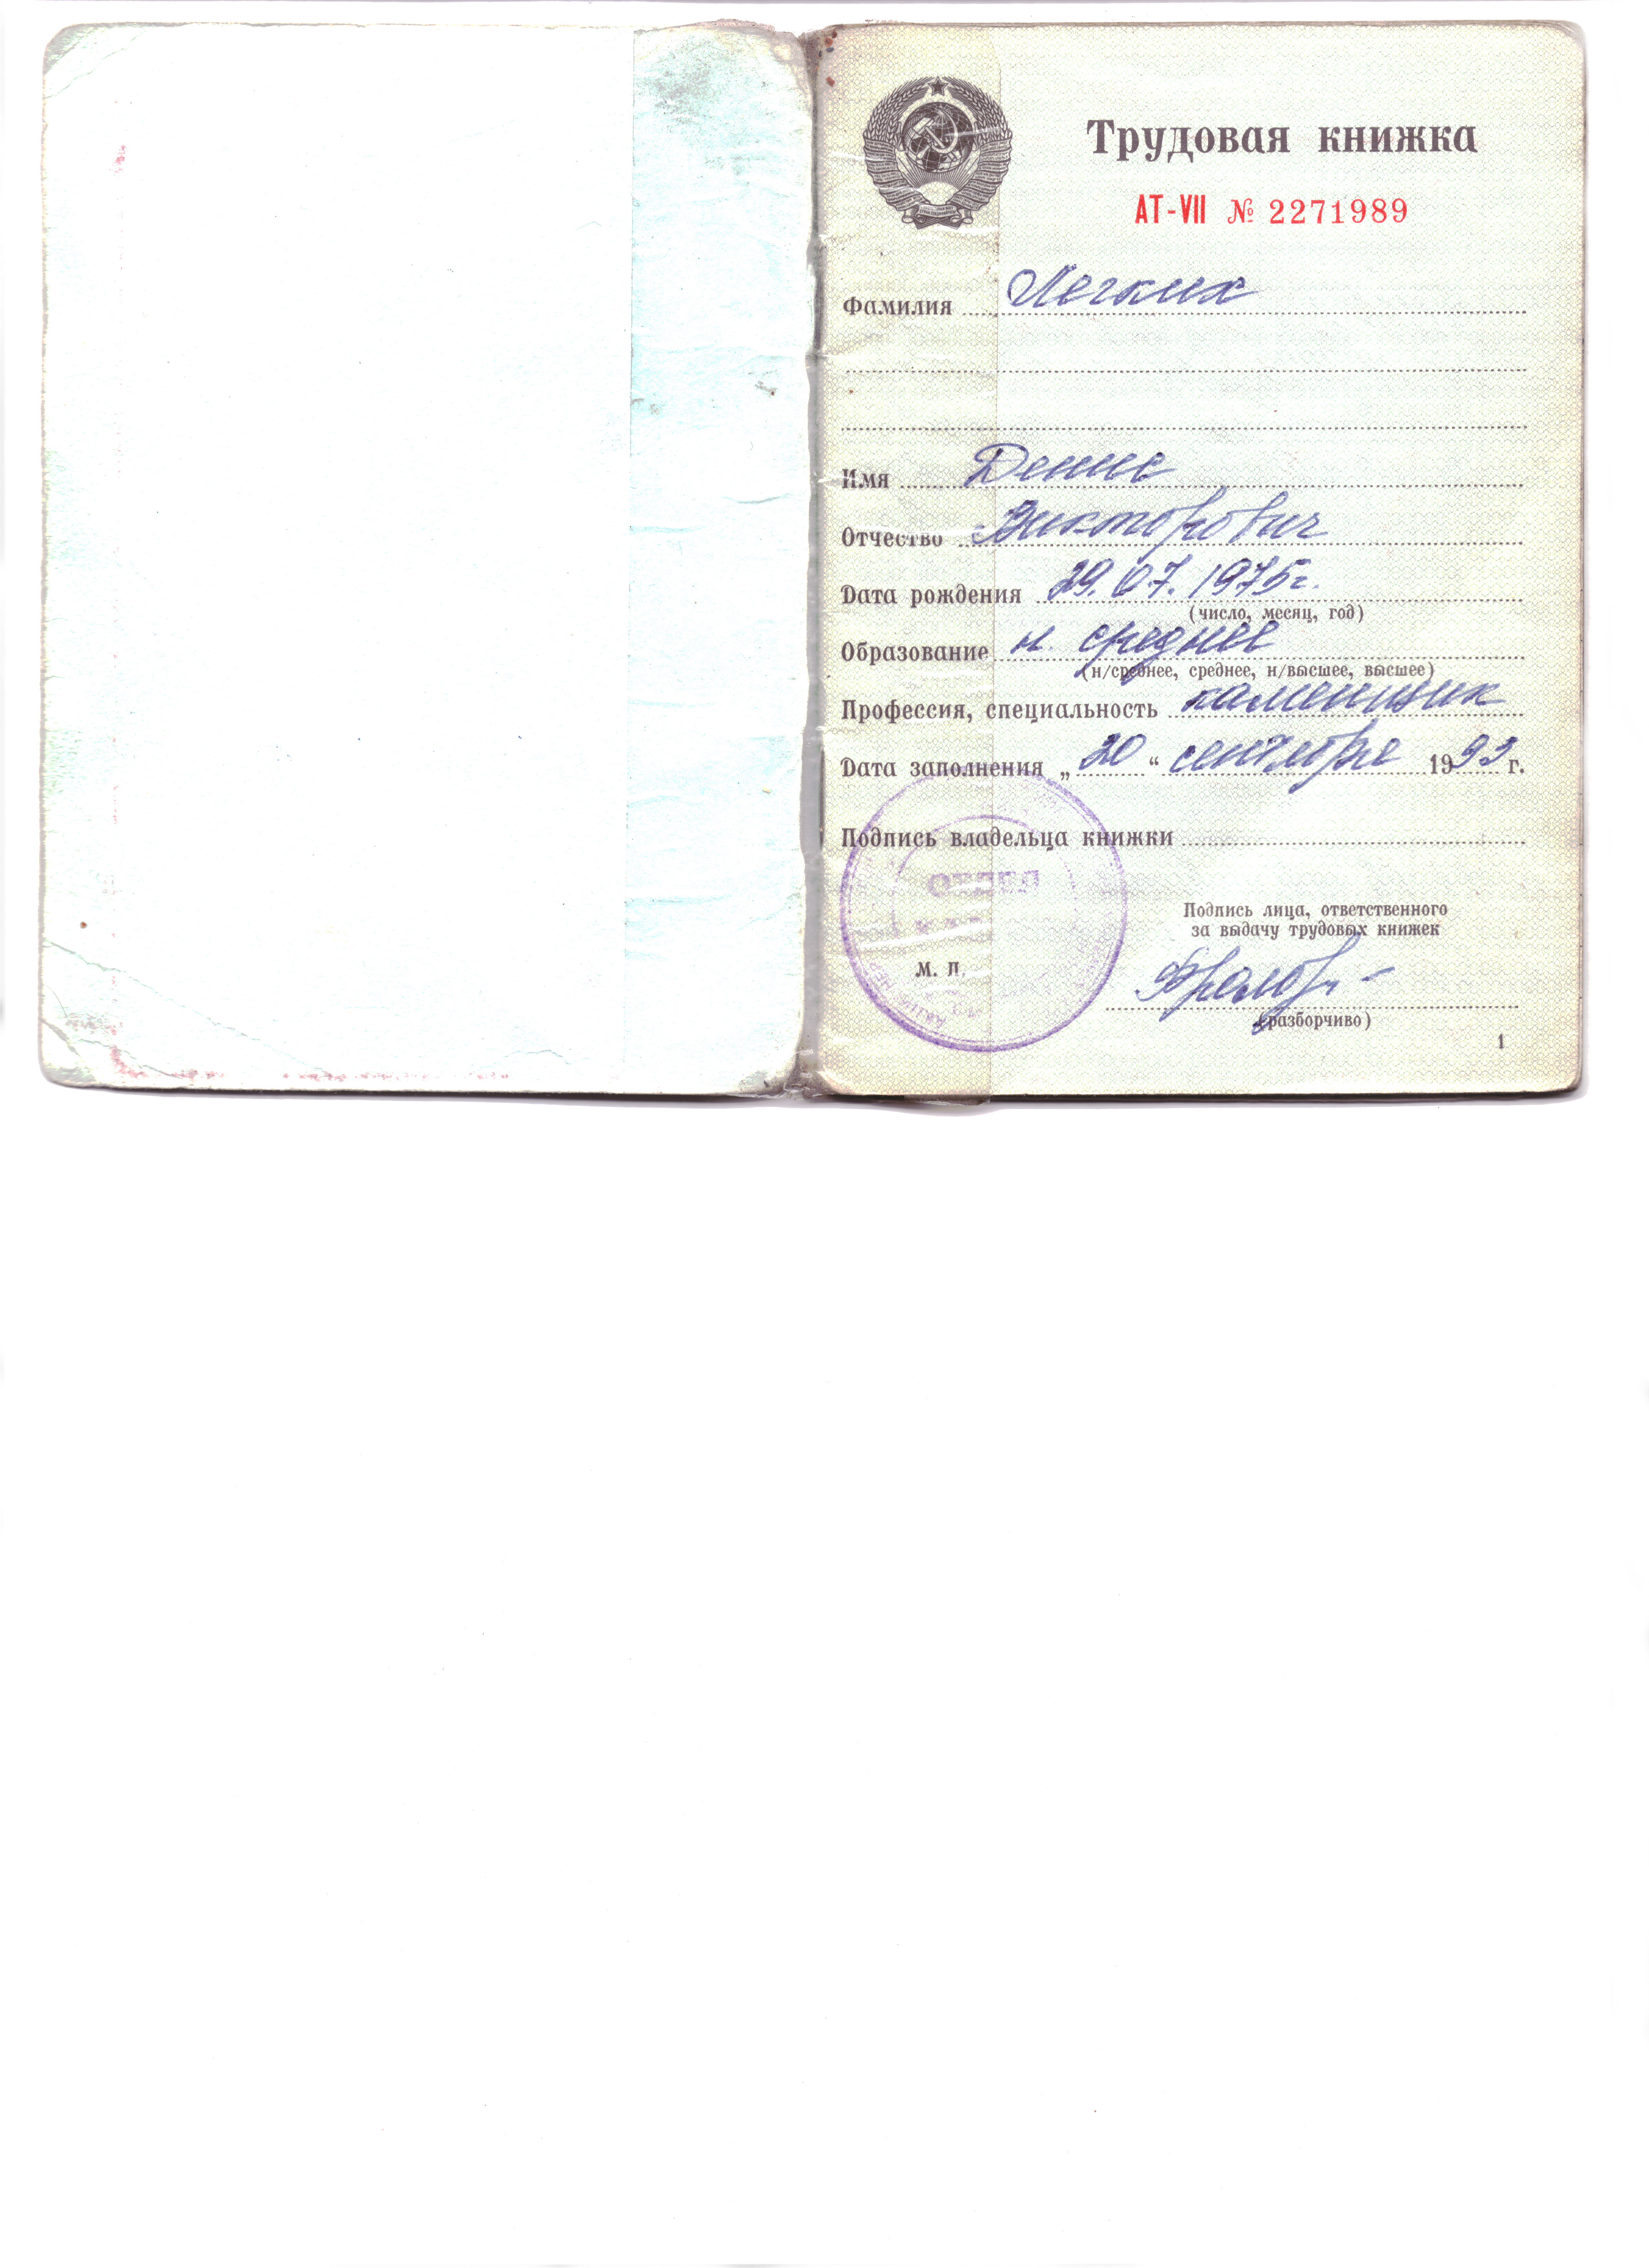 Трудовая книжка
АТ-VII № 2271989
Фамилия Легких
Имя Денис
Отчество Викторович
Дата рождения 29.07.1975г.
(число, месяц, год)
Образование н. среднее
(н/среднее, среднее, н/высшее, высшее)
Профессия, специальность каменщик
Дата заполнения „20“ сентября 1993 г.
Подпись владельца книжки
ОТДЕЛ
Подпись лица, ответственного
за выдачу трудовых книжек
М. П.
(разборчиво)
1